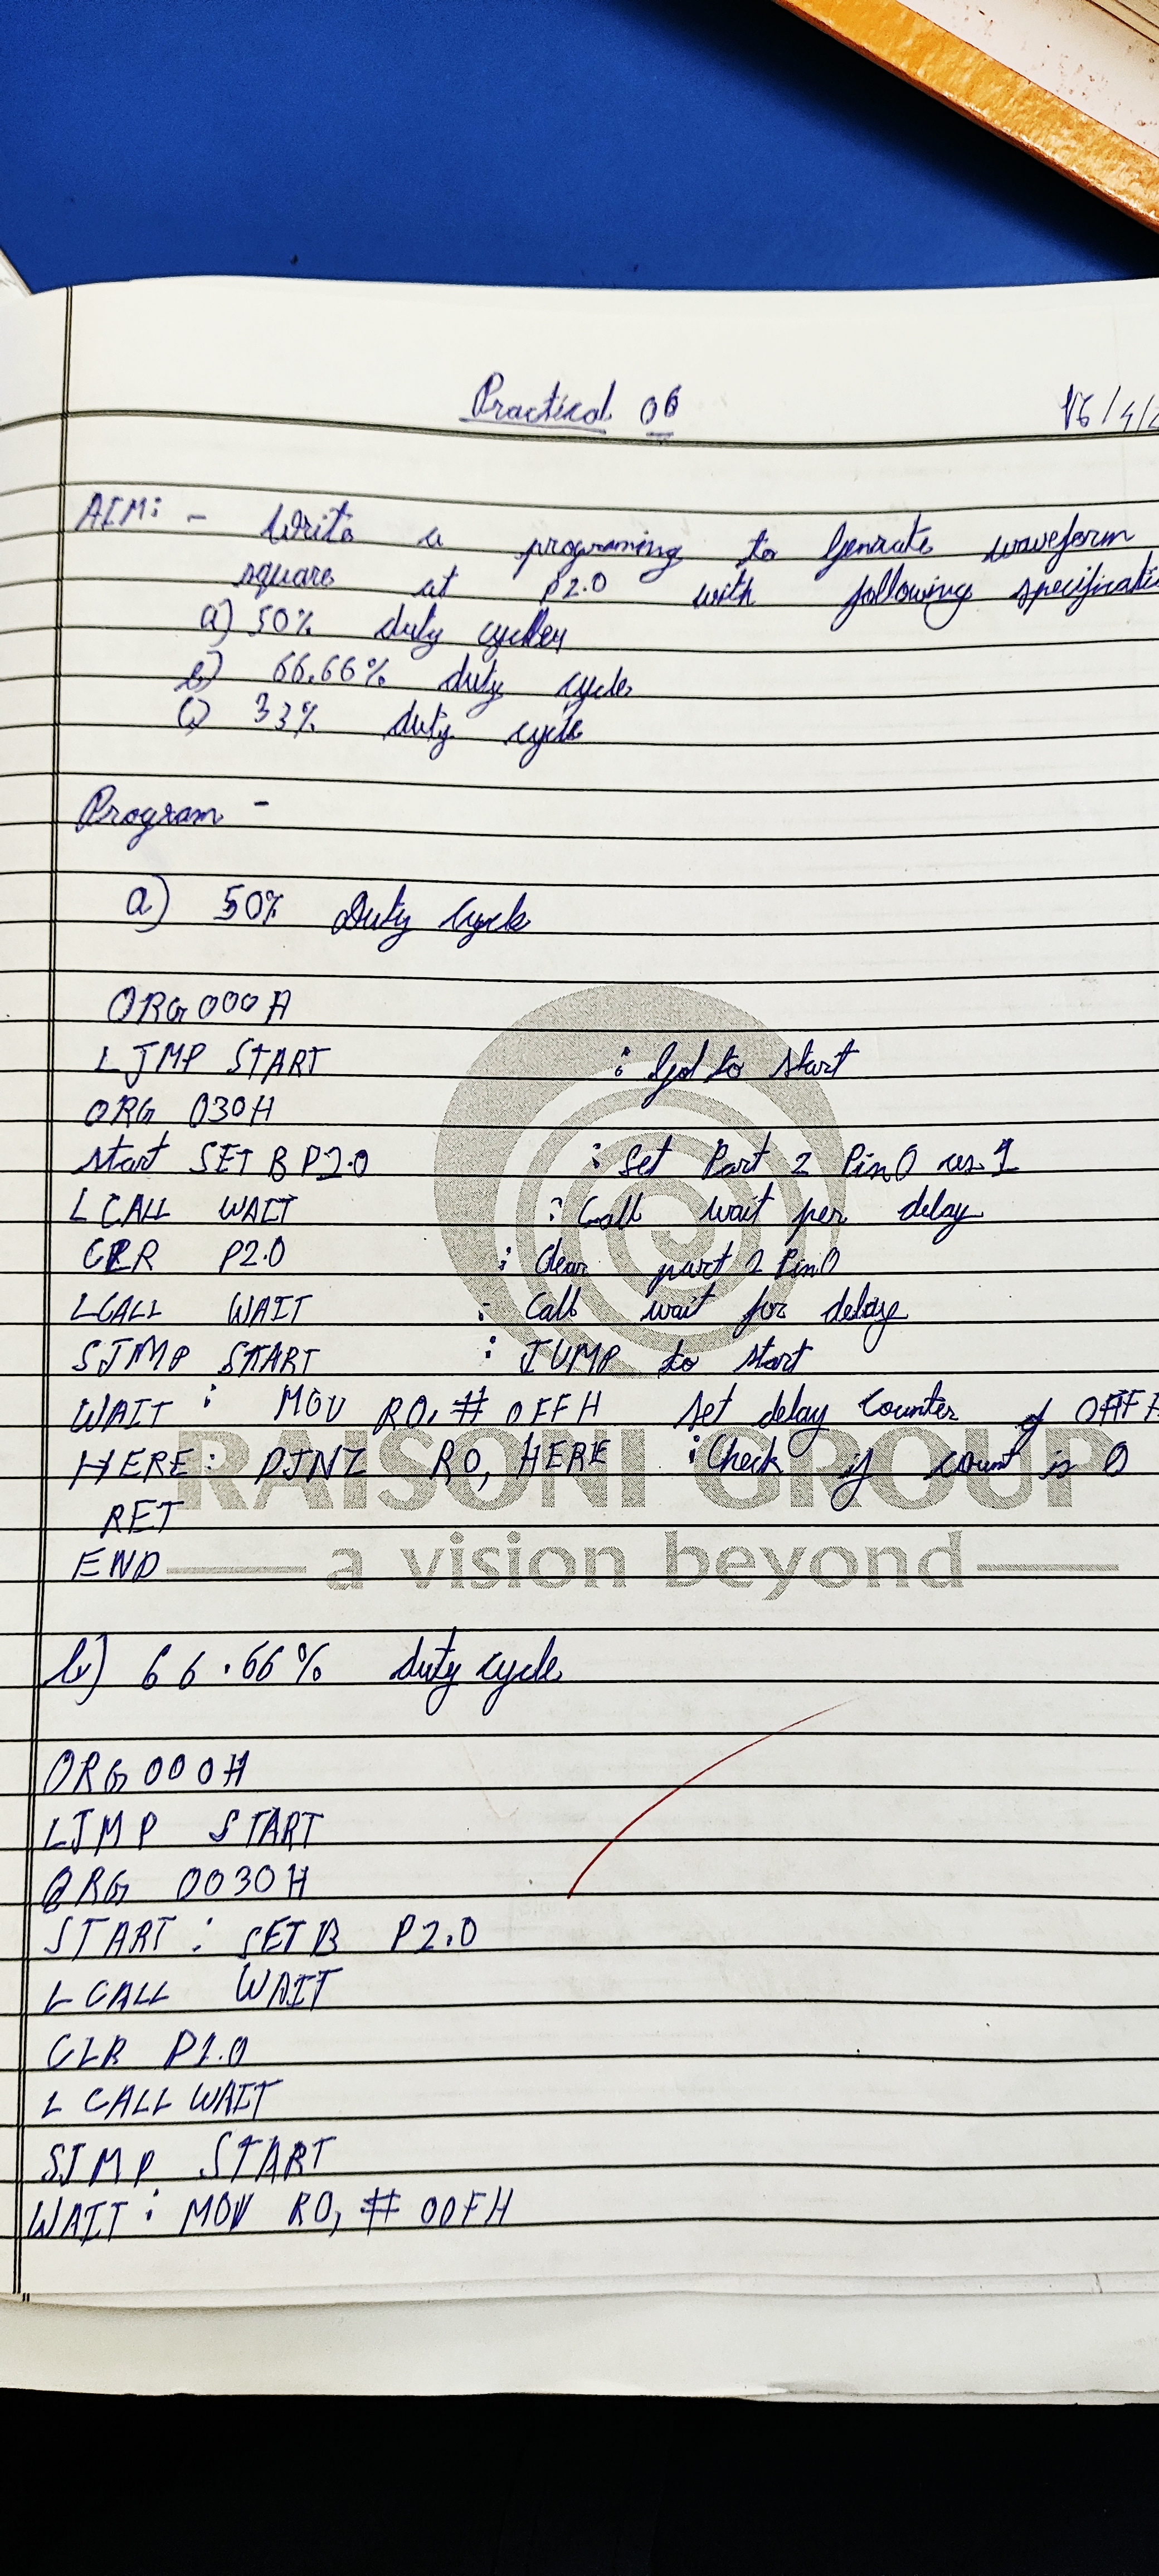 Practical 06
16/4/2
AIM: - Write a programing to Genrate waveform
square at P2.0 with following specificati
a) 50% duty cycle
b) 66.66% duty cycle
c) 33% duty cycle
Program -
a) 50% Duty Cycle
ORG 000H
LJMP START ; God to start
ORG 030H
start SETB P2.0 ; Set Part 2 Pin0 as 1
LCALL WAIT ; Call wait per delay
CLR P2.0 ; Clear part 2 Pin0
LCALL WAIT ; Call wait for delay
SJMP START ; JUMP to start
WAIT : MOV R0, # 0FFH Set delay counter of 0FFH
HERE: DJNZ R0, HERE ; Check if count is 0
RET
RAISONI GROUP
END
a vision beyond
b) 66.66% duty cycle
ORG 000H
LJMP START
ORG 0030H
START : SETB P2.0
LCALL WAIT
CLR P2.0
LCALL WAIT
SJMP START
WAIT : MOV R0, # 00FH